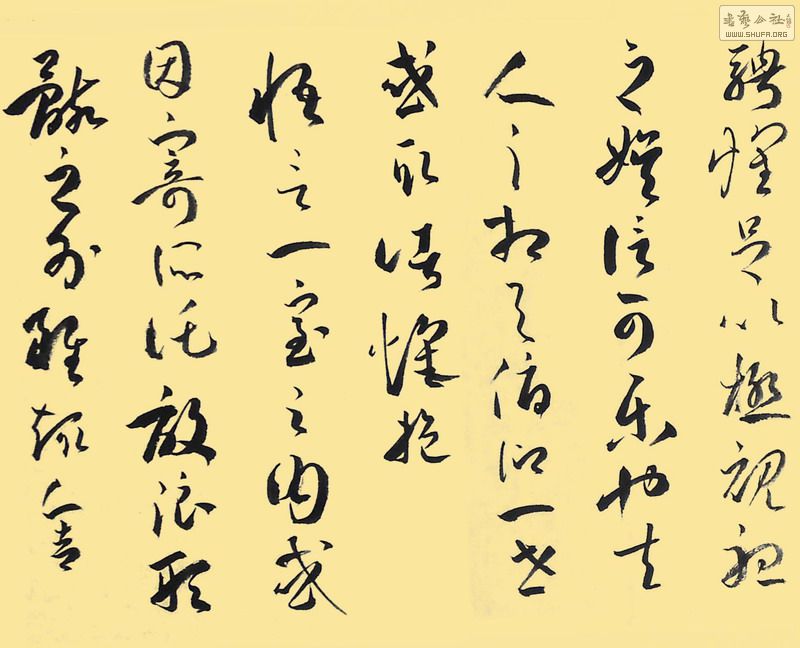 騁懷足以極視聽
之娛信可樂也夫
人之相與俯仰一世
或取諸懷抱
悟言一室之內或
因寄所託放浪形
骸之外雖趣舍
WWW.SHUFA.ORG